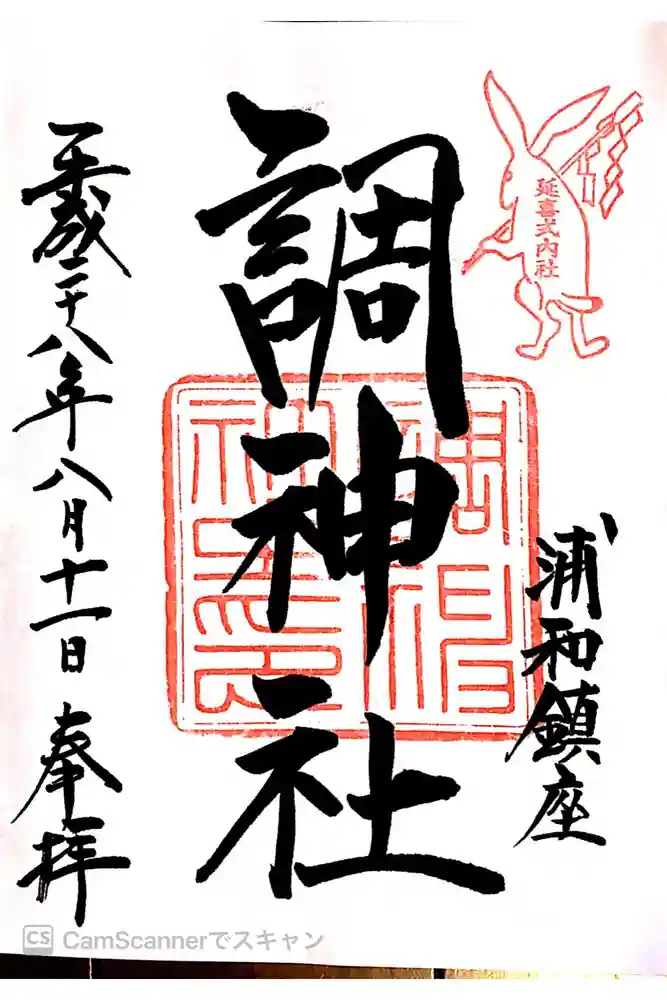 延喜式内社
浦和鎮座
調神社
平成二十八年八月十一日 奉拝
CS CamScannerでスキャン